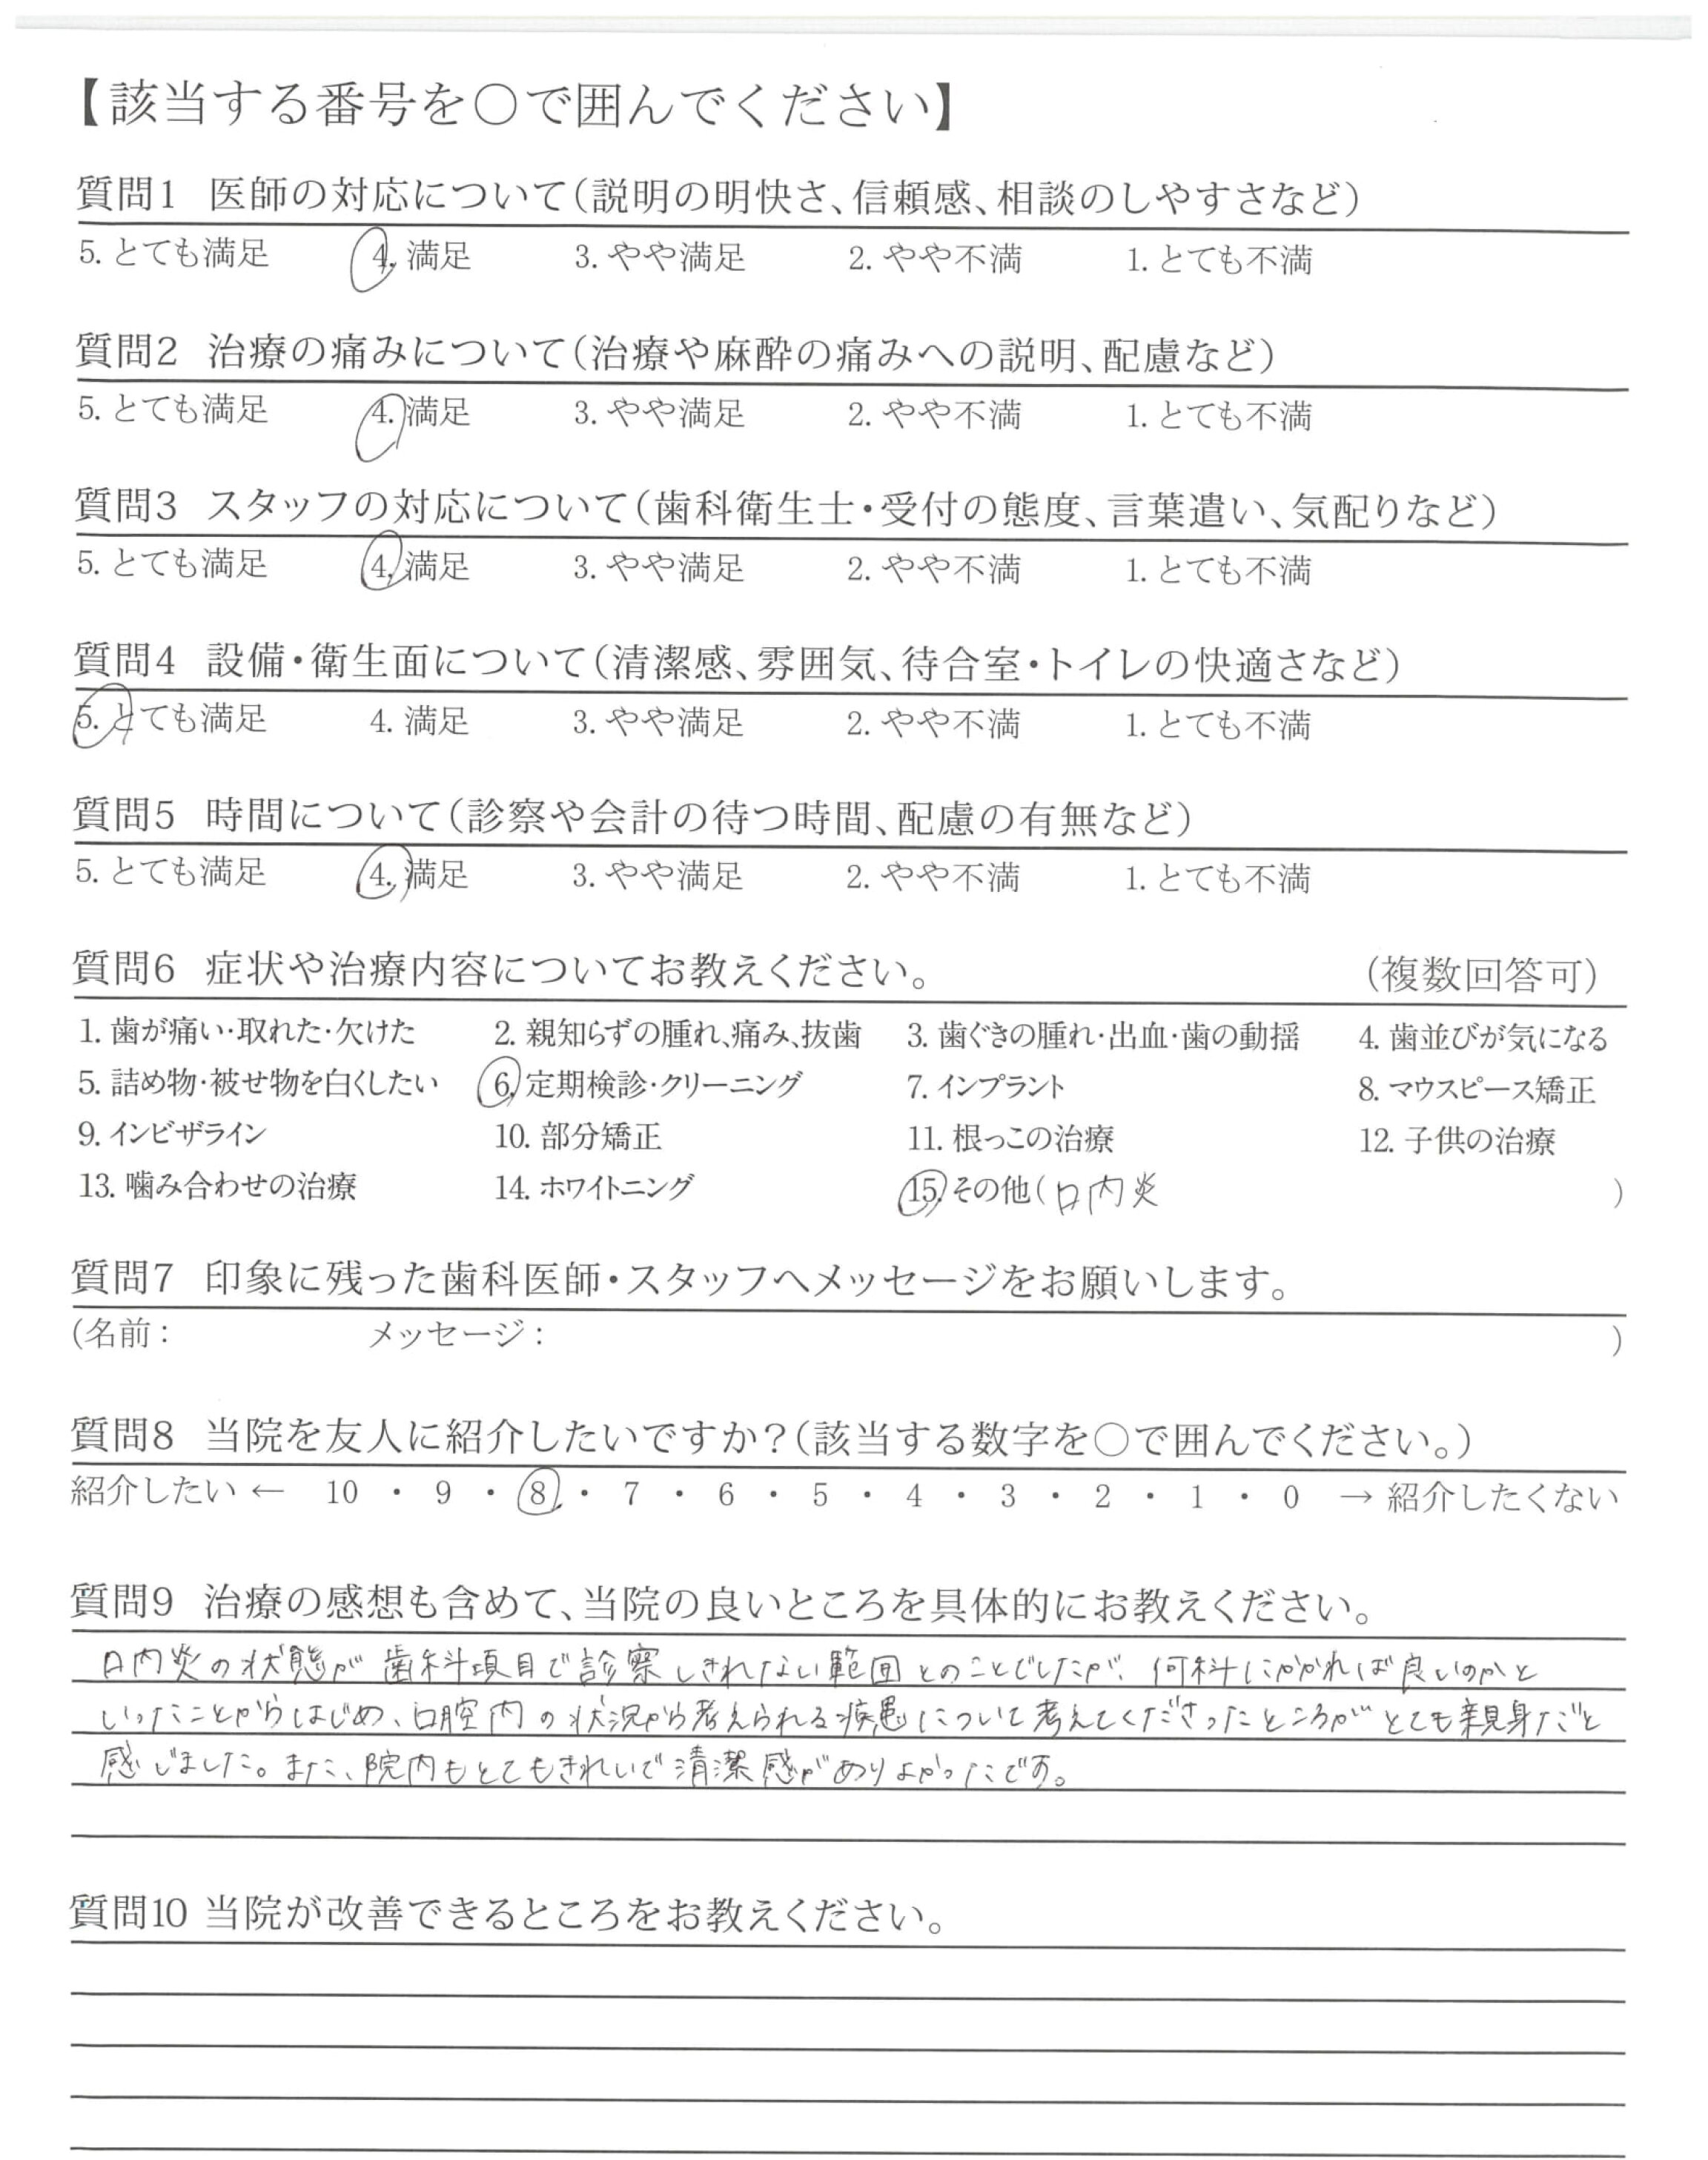 【該当する番号を○で囲んでください】
質問1 医師の対応について(説明の明快さ、信頼感、相談のしやすさなど)
5. とても満足 4. 満足 3. やや満足 2. やや不満 1. とても不満
質問2 治療の痛みについて(治療や麻酔の痛みへの説明、配慮など)
5. とても満足 4. 満足 3. やや満足 2. やや不満 1. とても不満
質問3 スタッフの対応について(歯科衛生士・受付の態度、言葉遣い、気配りなど)
5. とても満足 4. 満足 3. やや満足 2. やや不満 1. とても不満
質問4 設備・衛生面について(清潔感、雰囲気、待合室・トイレの快適さなど)
5. とても満足 4. 満足 3. やや満足 2. やや不満 1. とても不満
質問5 時間について(診察や会計の待つ時間、配慮の有無など)
5. とても満足 4. 満足 3. やや満足 2. やや不満 1. とても不満
質問6 症状や治療内容についてお教えください。 (複数回答可)
1. 歯が痛い・取れた・欠けた 2. 親知らずの腫れ、痛み、抜歯 3. 歯ぐきの腫れ・出血・歯の動揺 4. 歯並びが気になる
5. 詰め物・被せ物を白くしたい 6. 定期検診・クリーニング 7. インプラント 8. マウスピース矯正
9. インビザライン 10. 部分矯正 11. 根っこの治療 12. 子供の治療
13. 噛み合わせの治療 14. ホワイトニング 15. その他(口内炎 )
質問7 印象に残った歯科医師・スタッフへメッセージをお願いします。
(名前: メッセージ: )
質問8 当院を友人に紹介したいですか?(該当する数字を○で囲んでください。)
紹介したい ← 10 ・ 9 ・ 8 ・ 7 ・ 6 ・ 5 ・ 4 ・ 3 ・ 2 ・ 1 ・ 0 → 紹介したくない
質問9 治療の感想も含めて、当院の良いところを具体的にお教えください。
口内炎の状態が歯科項目で診察しきれない範囲とのことでしたが、何科にかかれば良いのかと
いったことからはじめ、口腔内の状況から考えられる疾患について考えてくださったところがとても親身だと
感じました。また、院内もとてもきれいで清潔感がありよかったです。
質問10 当院が改善できるところをお教えください。